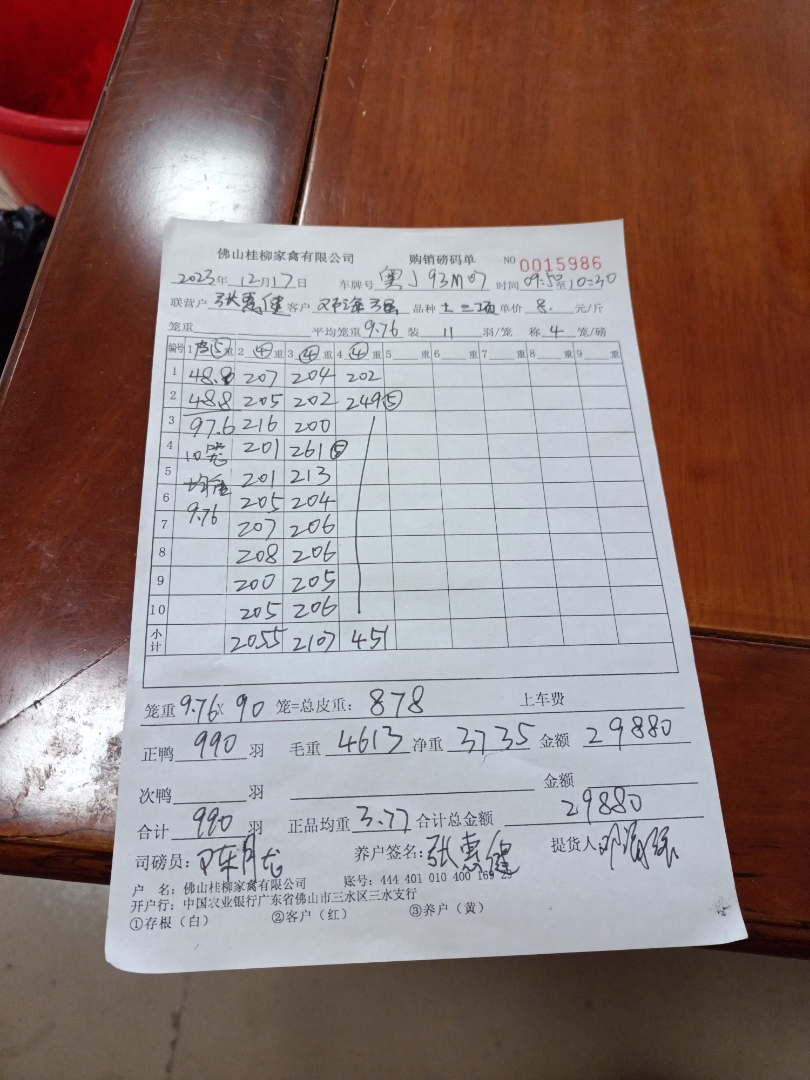 佛山桂柳家禽有限公司 购销磅码单 NO 0015986
2023年 12月17日 车牌号 粤J93M07 时间 09:50至10:30
联营户 张惠健 客户 邓海强 品种 单价 8. 元/斤
笼重 平均笼重 9.76 装 11 羽/笼 称 4 笼/磅
编号 1 ⑤ 重 2 ④ 重 3 ④ 重 4 ④ 重 5 重 6 重 7 重 8 重 9 重
1 48.8 207 204 202
2 48.8 205 202 249⑤
3 97.6 216 200
4 10笼 201 261⑤
5 均重 201 213
6 9.76 205 204
7 207 206
8 208 206
9 200 205
10 205 206
小计 2055 2107 451
笼重 9.76 x 90 笼=总皮重: 878 上车费
正鸭 990 羽 毛重 4613 净重 3735 金额 29880
次鸭 羽 金额
合计 990 羽 正品均重 3.77 合计总金额 29880
司磅员: 养户签名: 张惠健 提货人 邓海强
户 名: 佛山桂柳家禽有限公司 账号: 444 401 010 400 169 23
开户行: 中国农业银行广东省佛山市三水区三水支行
①存根(白) ②客户(红) ③养户(黄)